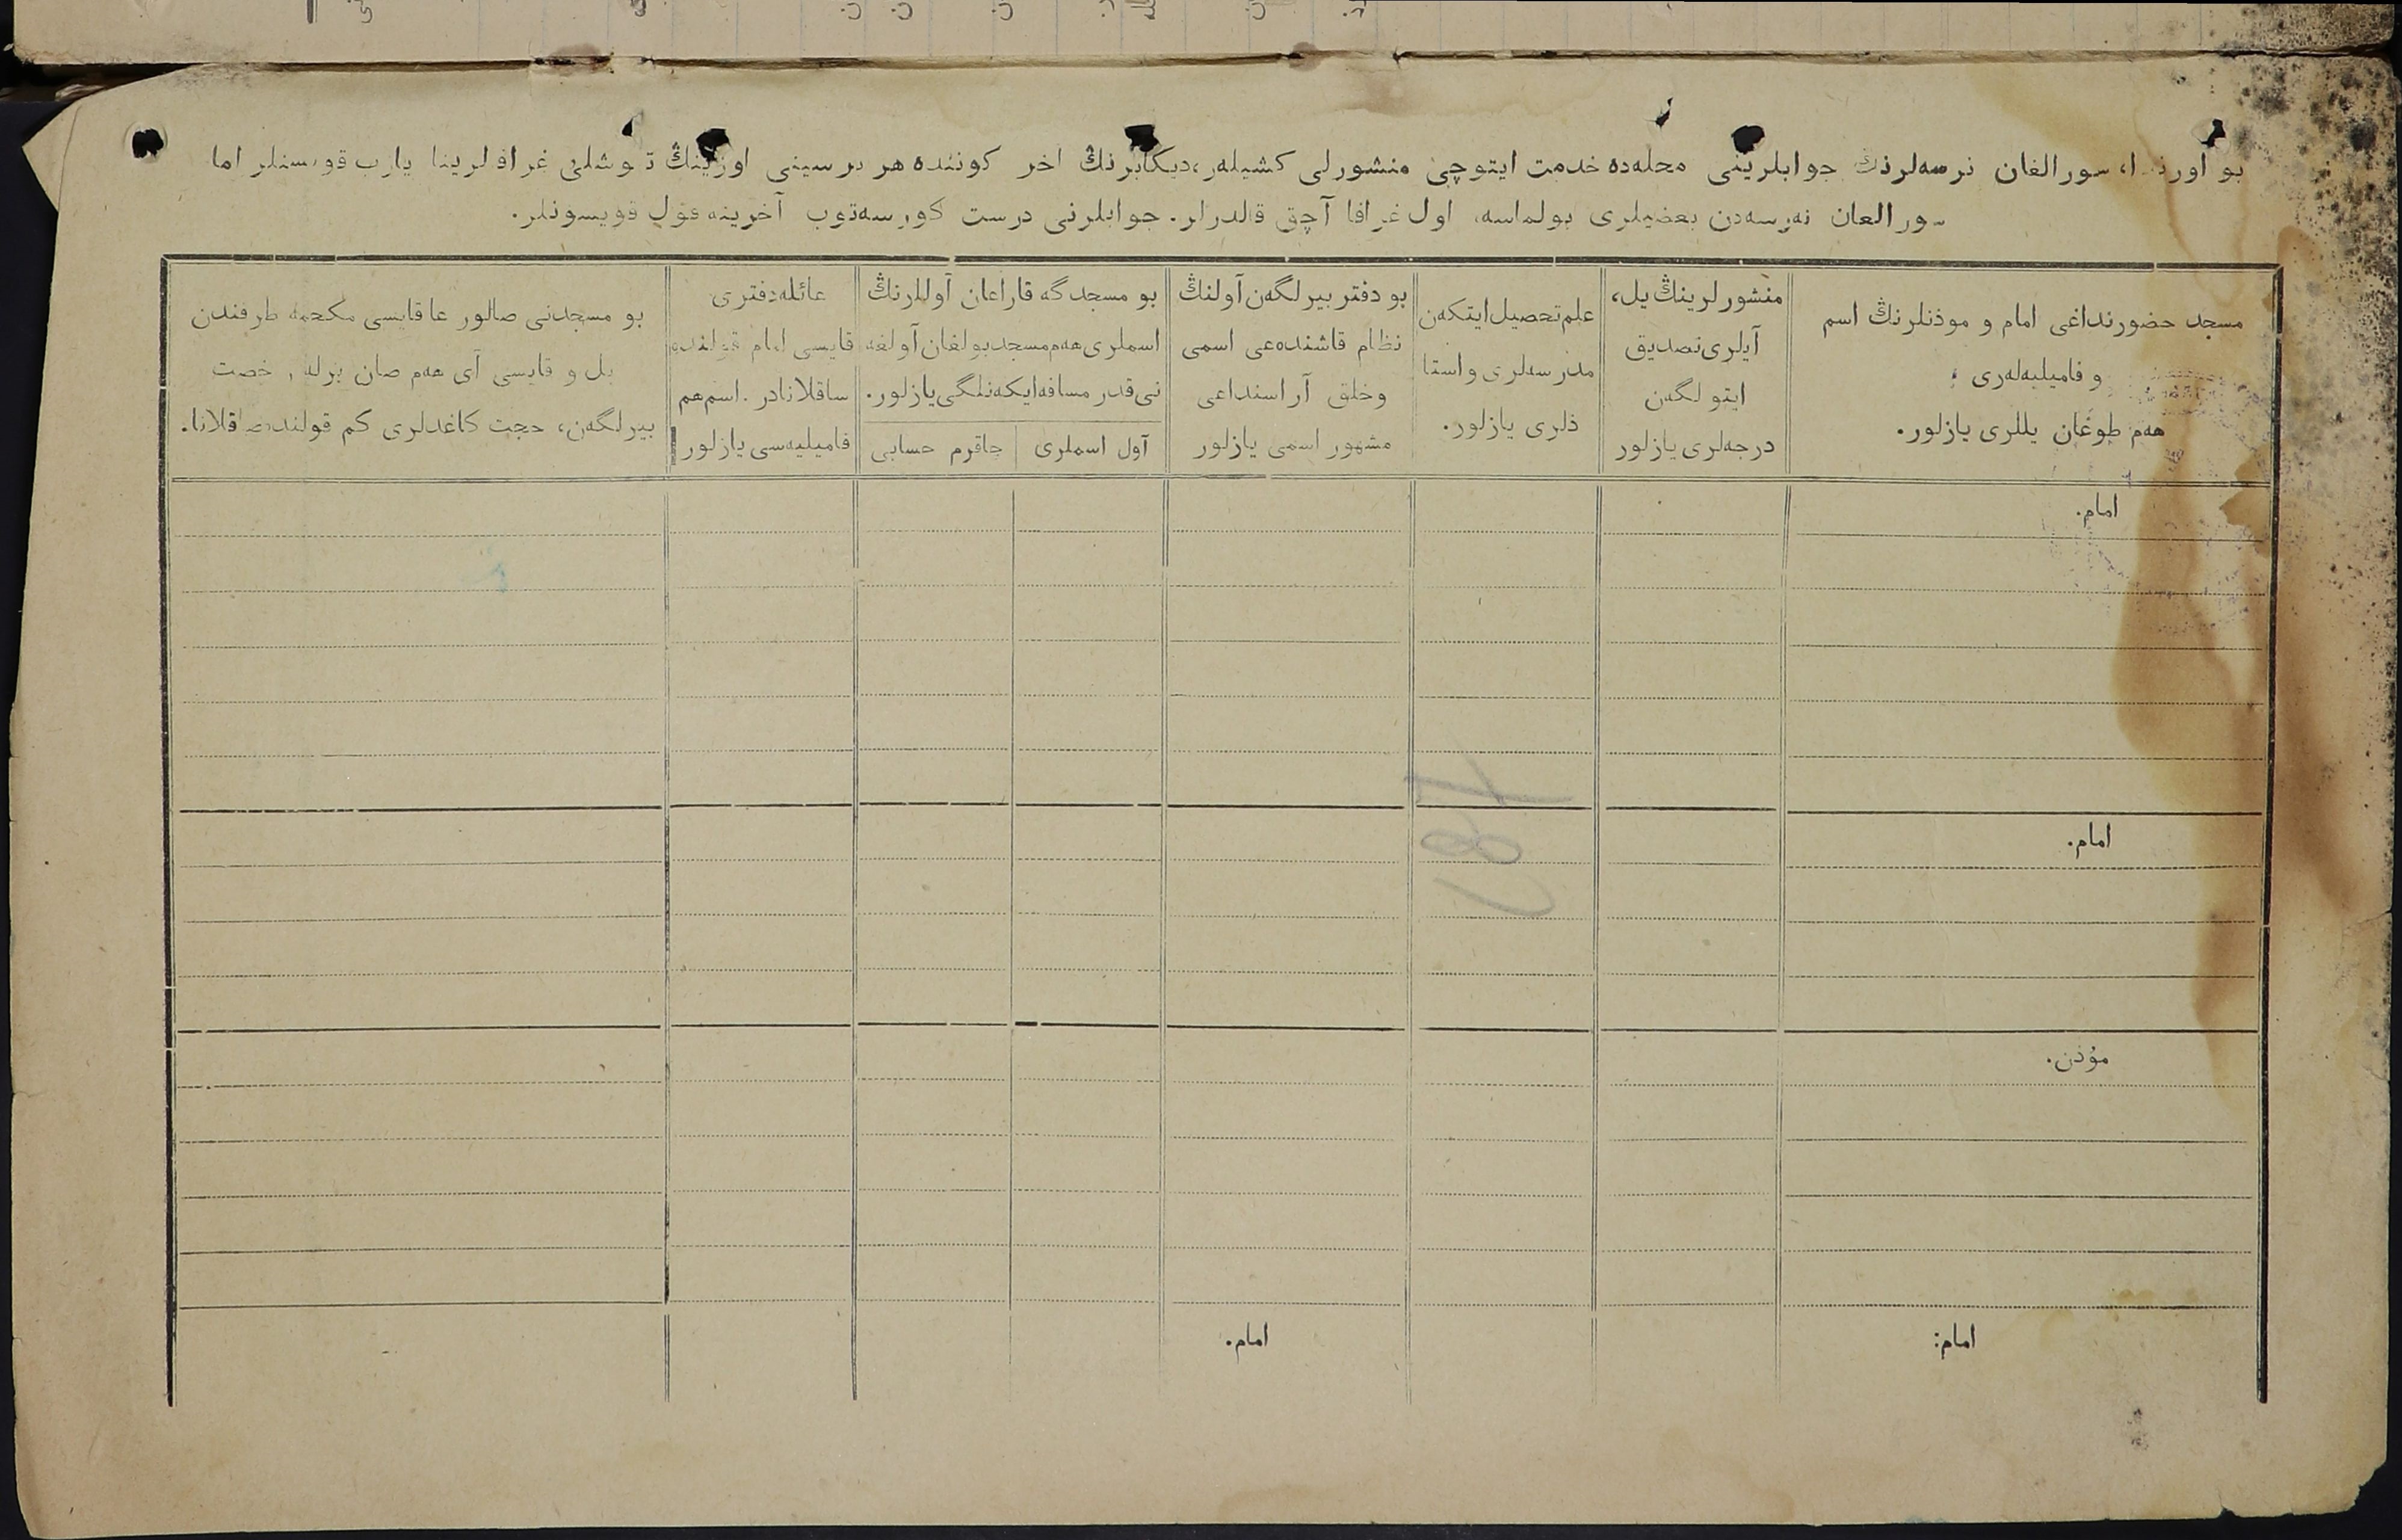 بو اورندا، سورالغان نرسه‌لرنڭ جوابلرینی محله‌ده خدمت ایتوچی منشورلی کشیلەر، دیکابرنڭ اخر کوننده هر برسینی اوزینڭ توشلی غرافلرینا یازب قویسنلر اما
سورالغان نەرسەدن بعضیلری بولماسه، اول غرافا آچق قالدرلر. جوابلرنی درست کورسەتوب آخرینه قول قویسونلر.
مسجد حضورنداغی امام و موذنلرنڭ اسم
و فامیلیه‌لەری
هەم طوغان یللری یازلور.
منشورلرینڭ یل،
آیلری تصدیق
ایتولگەن
درجه‌لری یازلور
علم تحصیل ایتکەن
مدرسه‌لری و استا
ذلری یازلور.
بو دفتر بیرلگەن آولنڭ
نظام قاشنده‌غی اسمی
و خلق آراسنداغی
مشهور اسمی یازلور
بو مسجدگه قاراغان آوللرنڭ
اسملری هەم مسجد بولغان آولغه
نی قدر مسافه ایکەنلگی یازلور.
آول اسملری
چاقرم حسابی
عائله دفتری
قایسی امام قولنده
ساقلانادر. اسم هم
فامیلیه‌سی یازلور
بو مسجدنی صالورغا قایسی محکمه طرفندن
یل و قایسی آی هەم صان برله رخصت
بیرلگەن، حجت کاغدلری کم قولنده صاقلانا.
امام.
امام.
مؤذن.
امام:
امام.